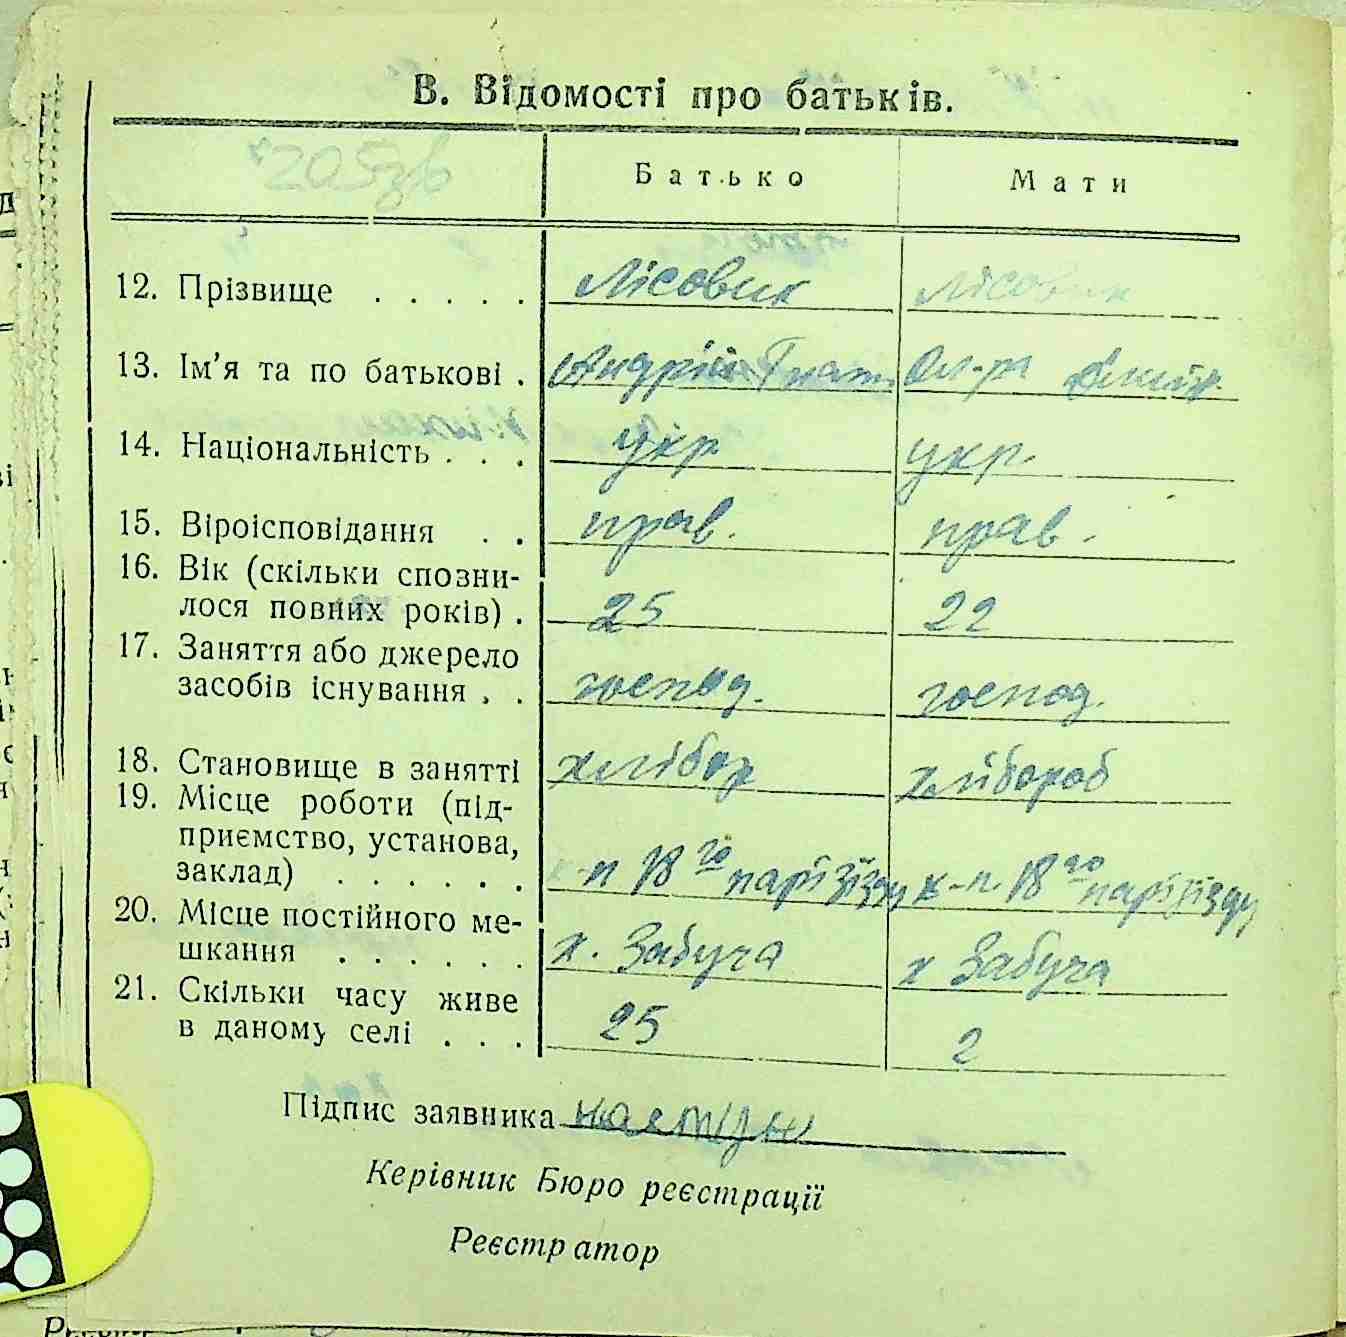 В. Відомості про батьків.
Батько Мати
12. Прізвище . . . . . Лісовик Лісовик
13. Ім'я та по батькові . Андрій Гнат.
14. Національність . . . укр укр.
15. Віроісповідання . . прав. прав.
16. Вік (скільки спозни-
лося повних років) . 25 22
17. Заняття або джерело
засобів існування . . господ. господ.
18. Становище в занятті хлібор хлібороб
19. Місце роботи (під-
приємство, установа,
заклад) . . . . . . к-п 18го партзїзду к-п. 18го партзїзду
20. Місце постійного ме-
шкання . . . . . . х. Забуча х Забуча
21. Скільки часу живе
в даному селі . . . 25 2
Підпис заявника
Керівник Бюро реєстрації
Реєстратор